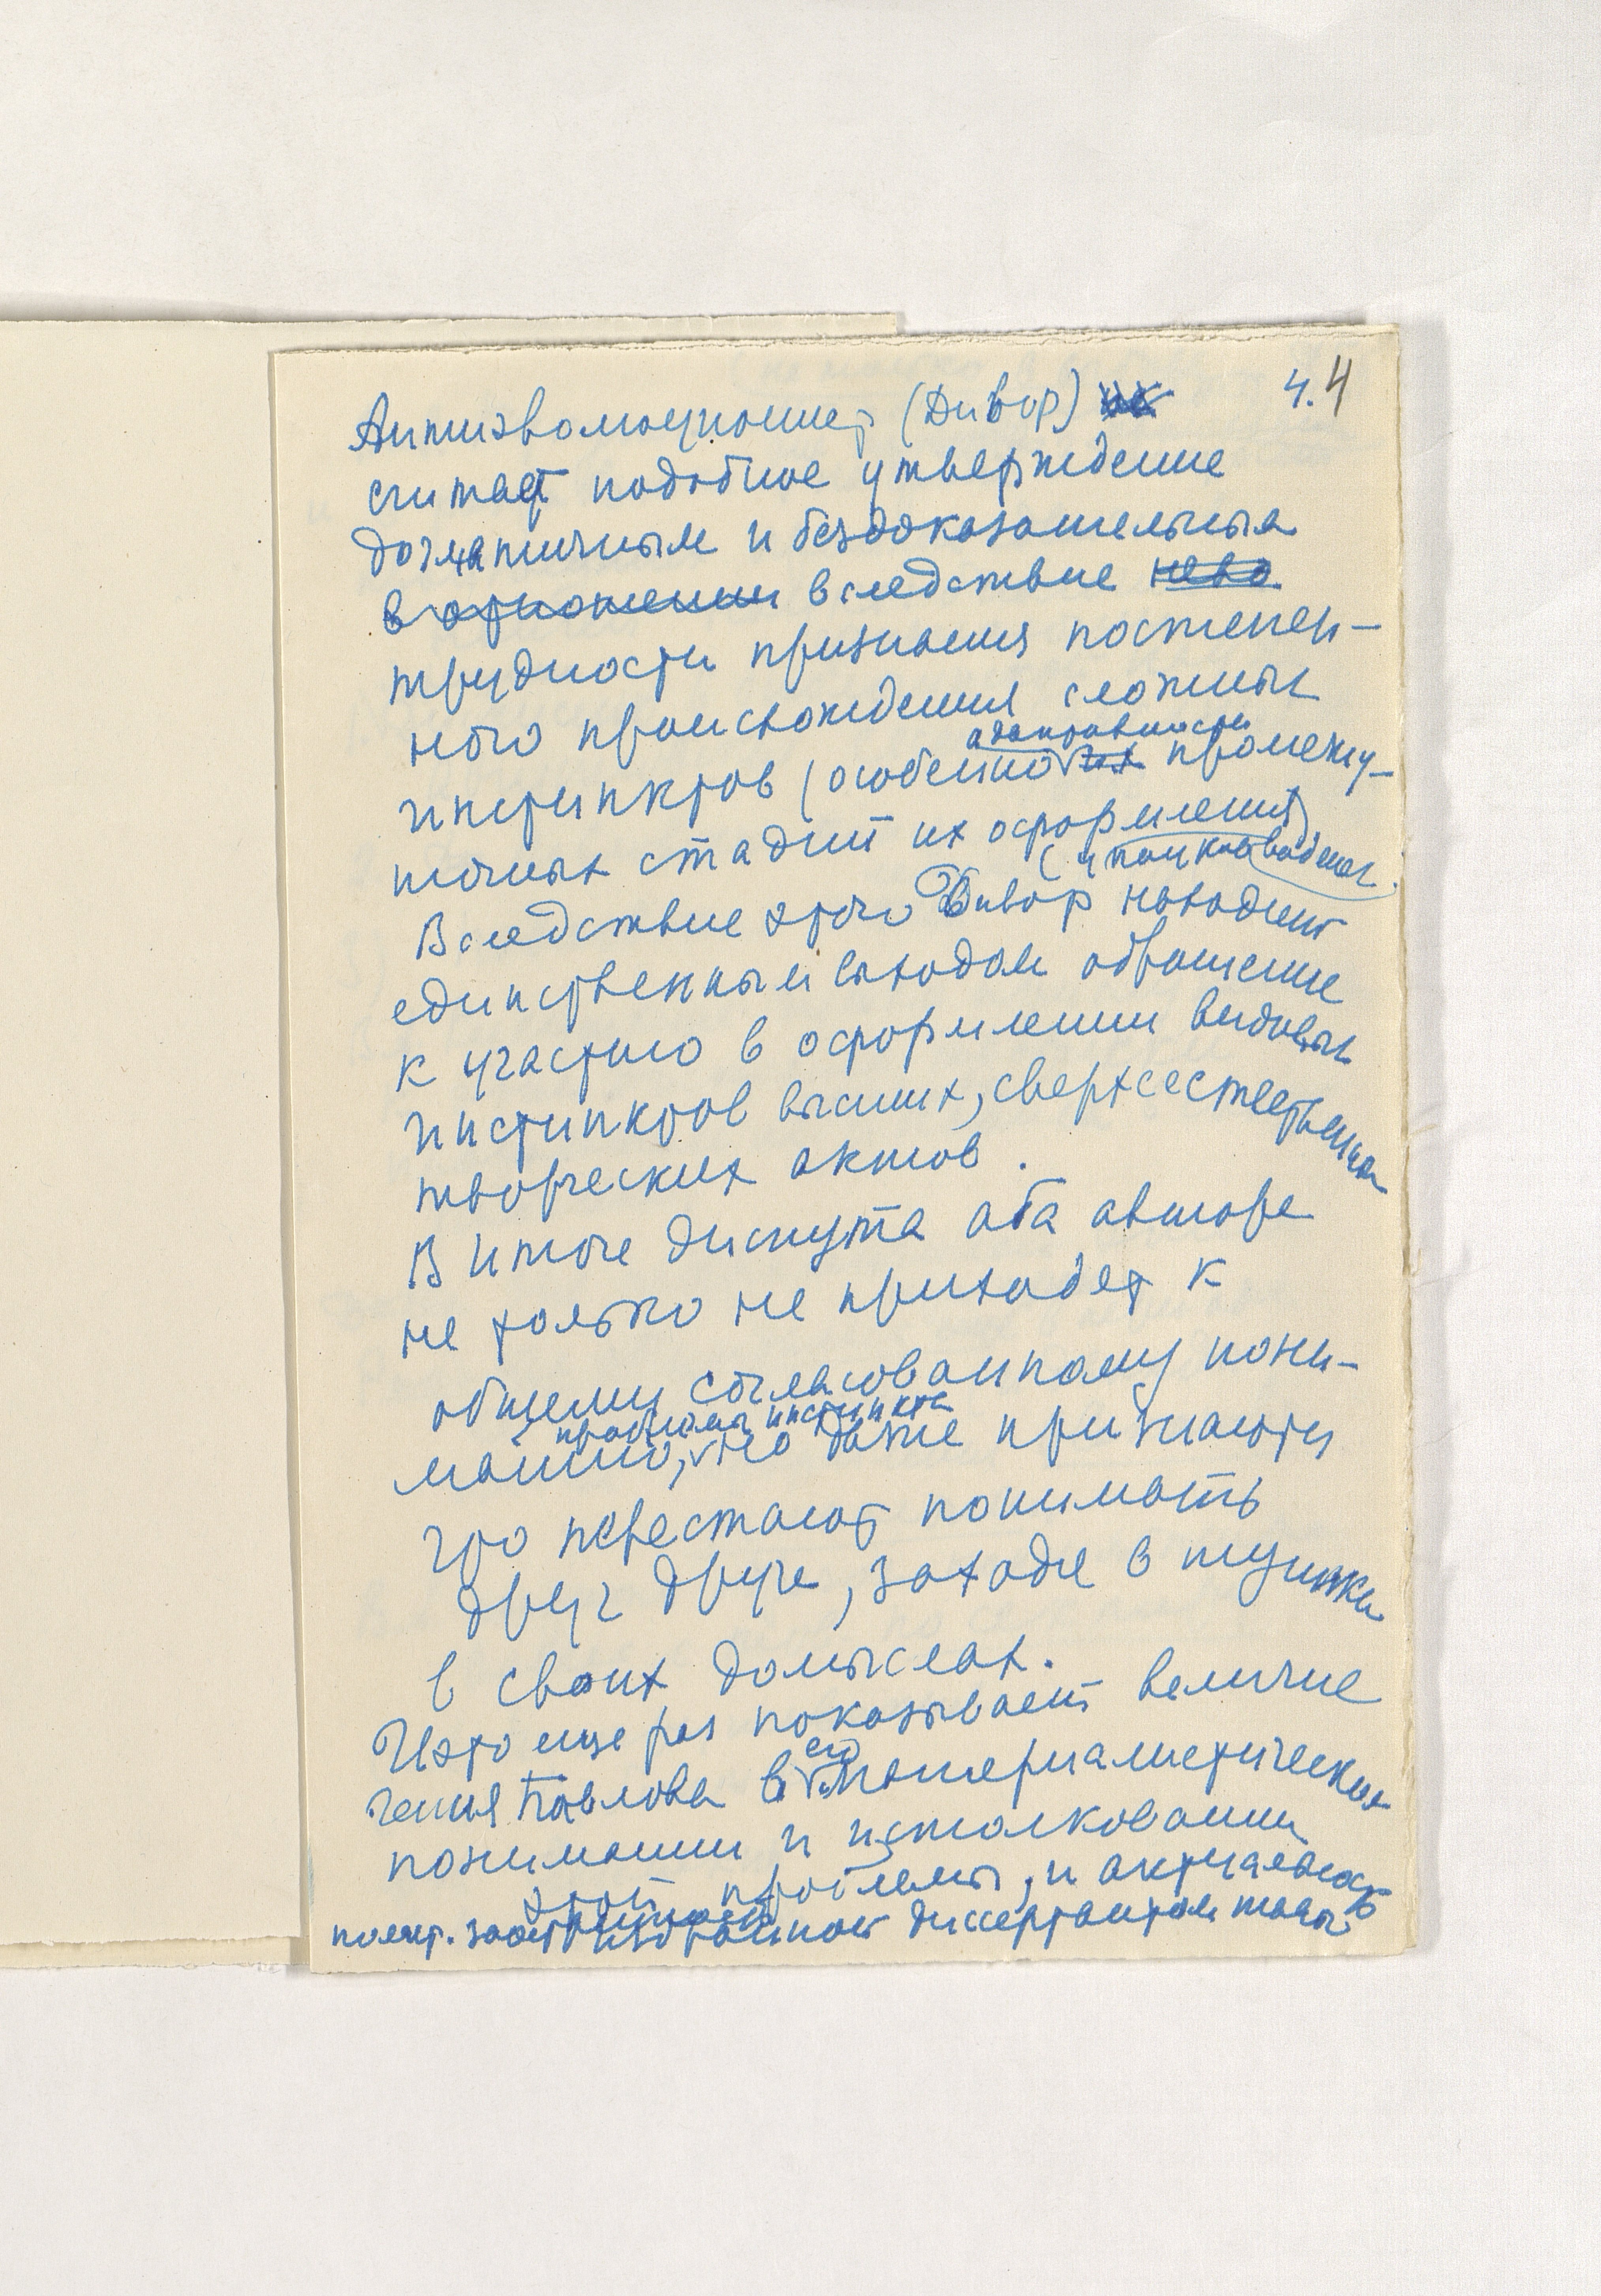 4. 4
Антиэволюционист (Дивор)
считает подобное утверждение
догматичным и бездоказательным
в отношении вследствие
трудности признания постепен-
ного происхождения сложных
адаптивности
инстинктов (особенно их промежу-
точных стадий их оформления)
Вследствие этого Дивор находит
единственным выходом обращение
к участию в оформлении видовых
инстинктов высших, сверхъестественных
творческих актов.
В итоге диспута оба автора
не только не приходят к
общему согласованному пони-
проблемы инстинкта
манию, но даже признаются
что перестают понимать
друг друга, заходя в тупики
в своих домыслах.
И это еще раз показывает величие
его
гения Павлова в материалистическом
понимании и истолковании
этой проблемы, и актуальность
диссертантом темы